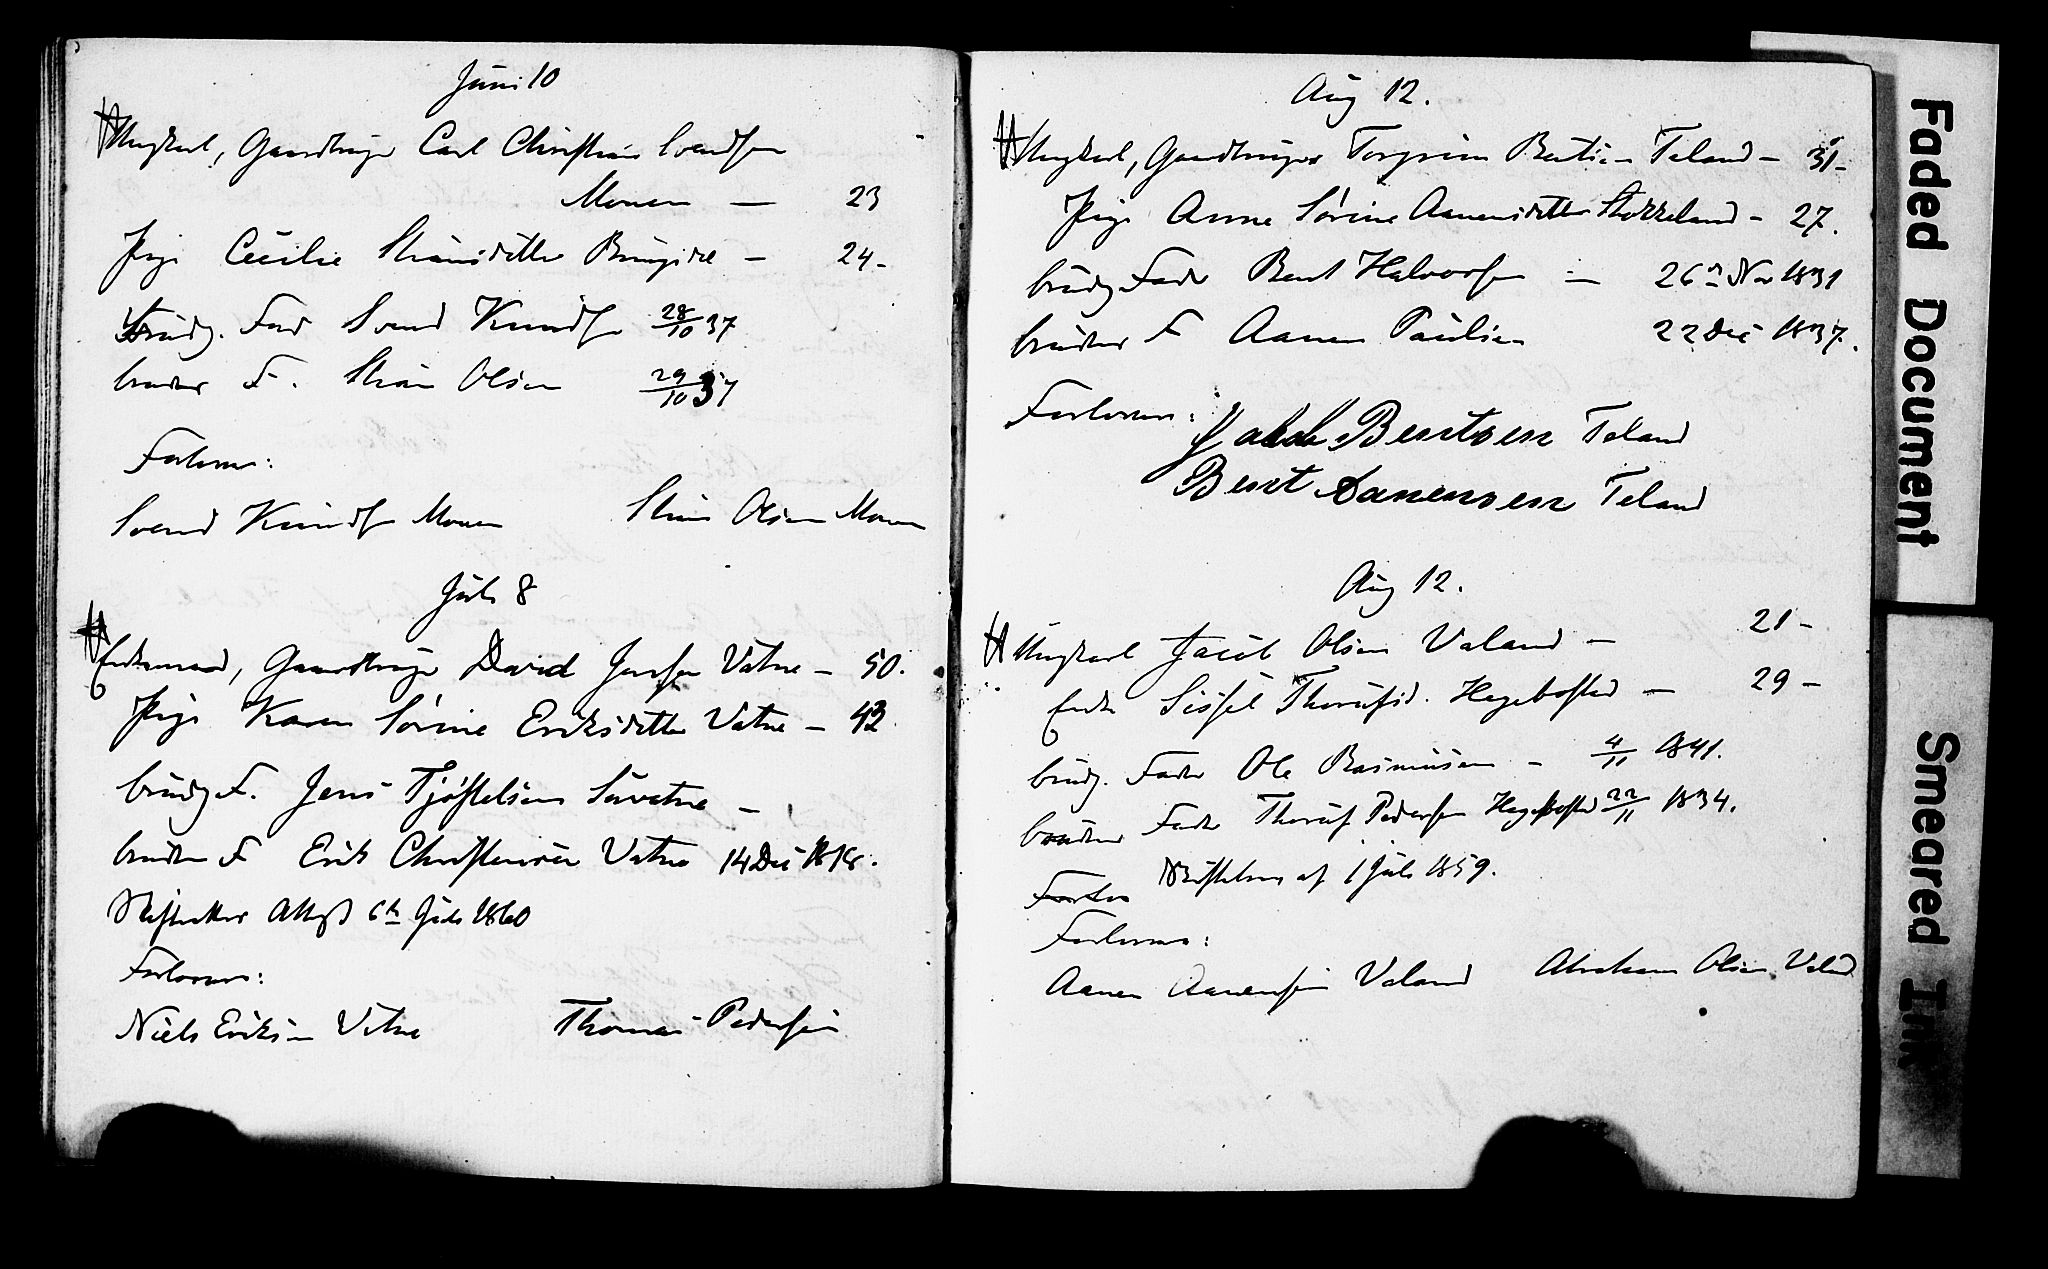 Juni 10
Ungkarl, Gaardbruger Carl Christian Svendsen
Monen — 23
Pige Cecilie Stiansdatter Bringsdal — 24 -
brudg. Fad Svend Knudsen 28/10 37
brudens F. Stian Olsen 29/10 37
Forlovere:
Svend Knudsen Monen Stian Olsen Monen
Juli 8
Enkemand, Gaardbruger David Jensen Vatne — 50.
Pige Karen Sørine Eriksdatter Vatne — 42
brudg F. Jens Tjøstelsen Sørvatne —
brudens F Erik Christensen Vatne 14 Dec 1818.
Skifteretten Attest 6te Juli 1860
Forlovere:
Niels Eriksen Vatne Thomas Pedersen
Aug 12.
Ungkarl, Gaardbruger Torgrim Bentsen Taland — 31 -
Pige Anne Sørine Aanensdatter Stokkeland - 27.
brudg Fader Bent Halvorsen — 26n Nov 1831
brudens F Aanen Paulsen 22 Dec 1837.
Forlovere:
Jakob Bentsen Taland
Bent Aanensen Taland
Aug 12.
Ungkarl Jacob Olsen Valand — 21 -
Enke Sissel Thorufsd. Hegebostad — 29 -
brudg. Fader Ole Rasmussen - 4/11 1841.
brudens Fader Thoruf Pedersen Hegebostad 22/11 1834.
Skiftebrev af 1 Juli 1859.
Forlovere:
Aanen Aanensen Valand Abraham Olsen Valand
Faded Document
Smeared Ink